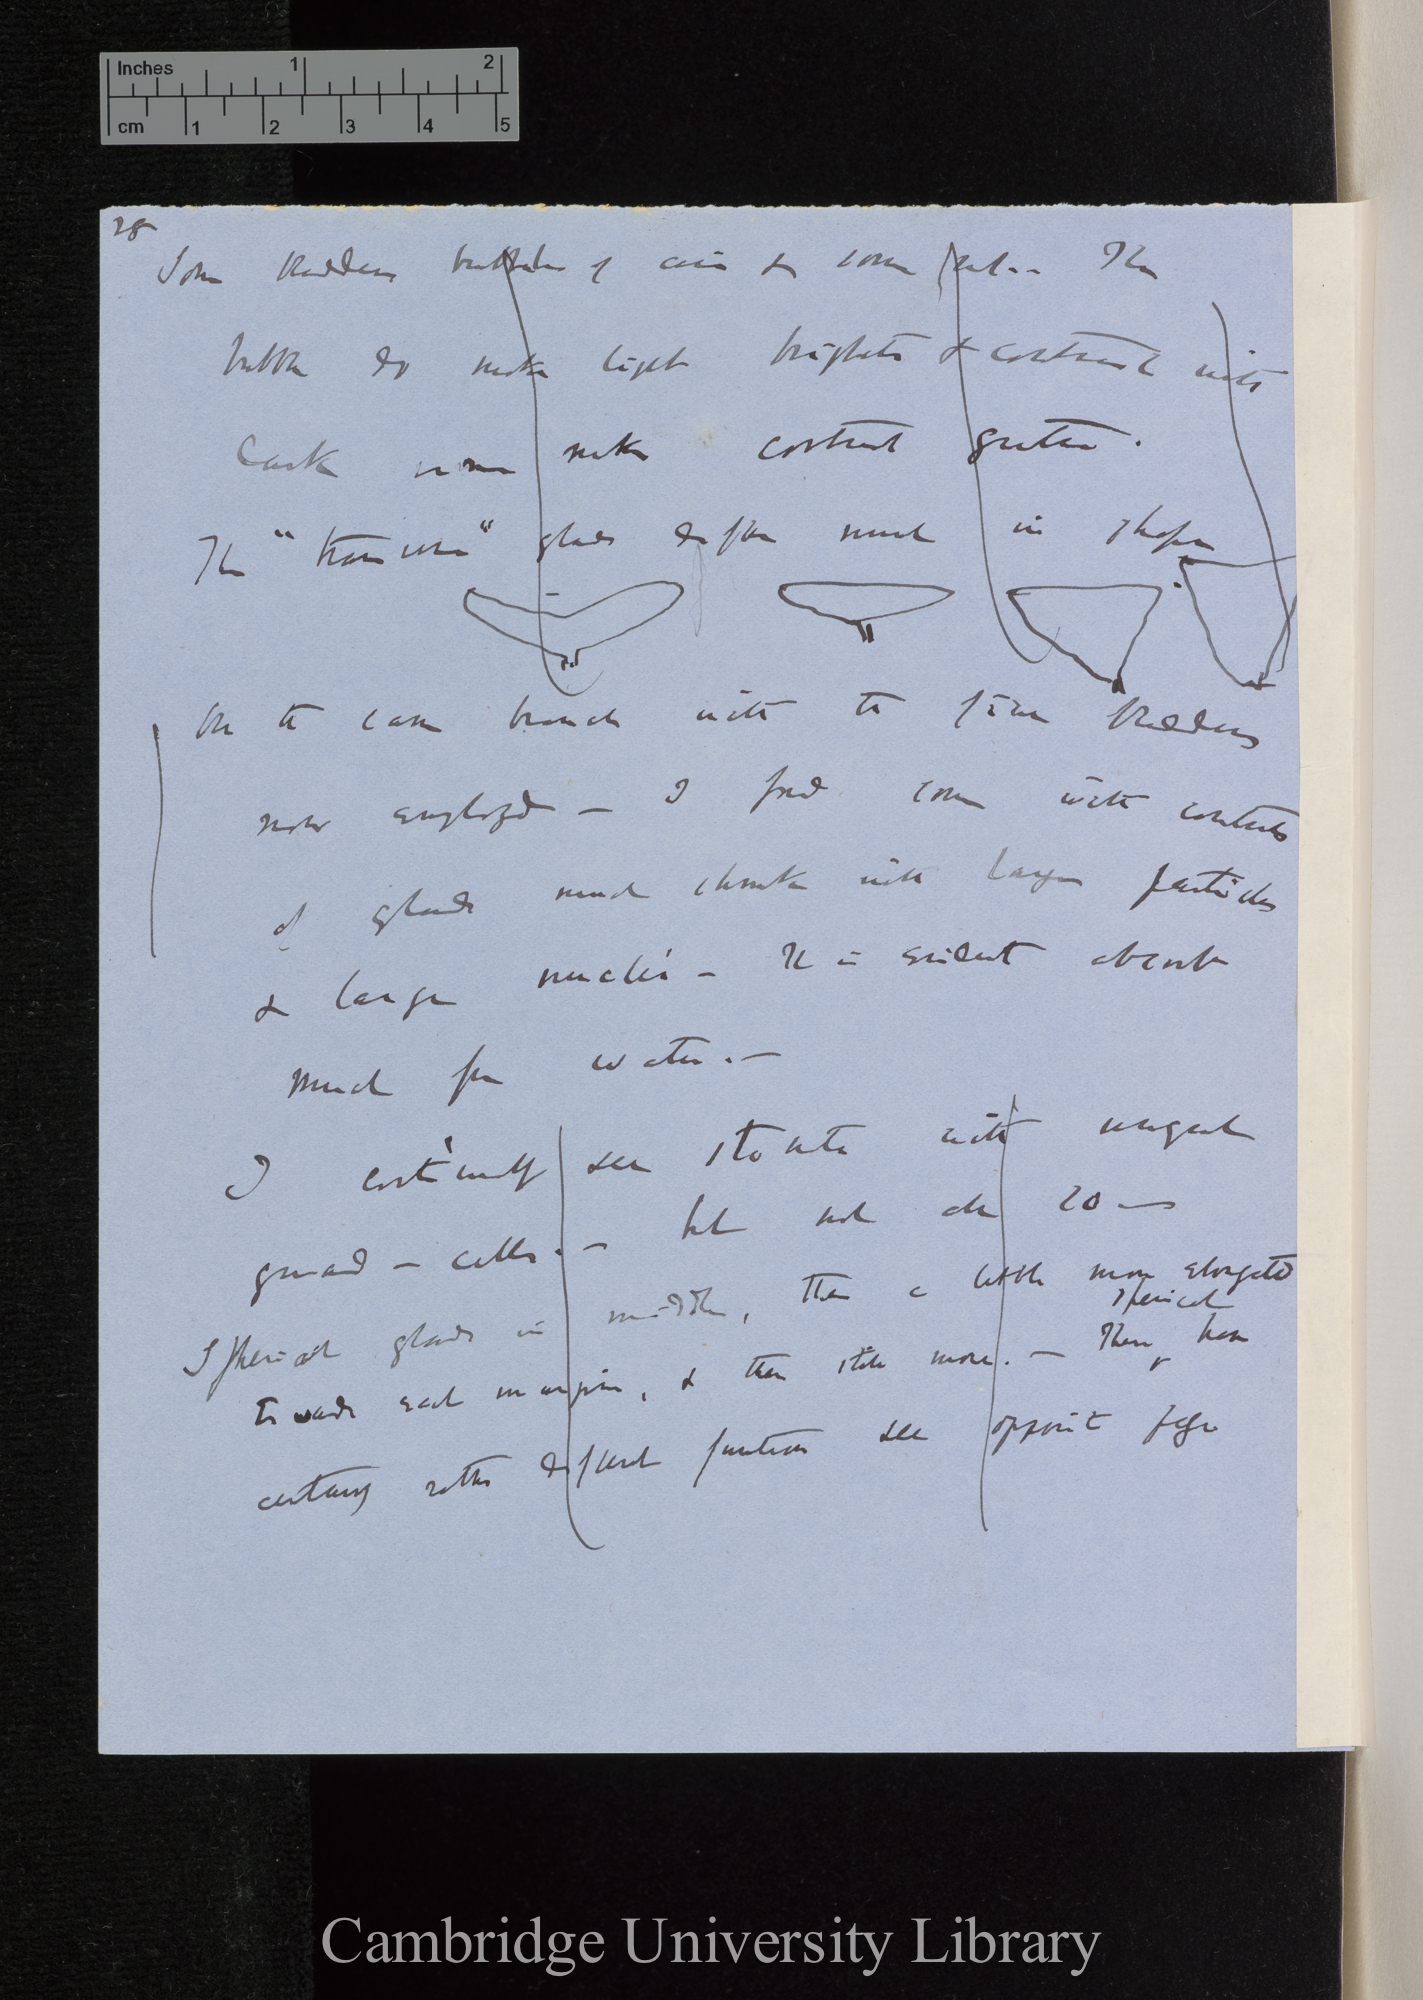 Inches 1 2
cm 1 2 3 4 5
28
Some bladders bubbles of air & some not.— The
bubble do make light brighter & contrast with
dark
make contrast greater.
The "transverse" glands differ much in shape
On the same branch with the fine bladders
now employed — I find some with contents
of glands much shrunk with large particles
& large nuclei — It is evident absorb
much from water.—
I continually see stomata with
guard-cells.— but not also
Spherical glands in middle, then a little more elongated
towards each margin, & then still more.— These spherical have
certainly rather different functions see opposite page
Cambridge University Library